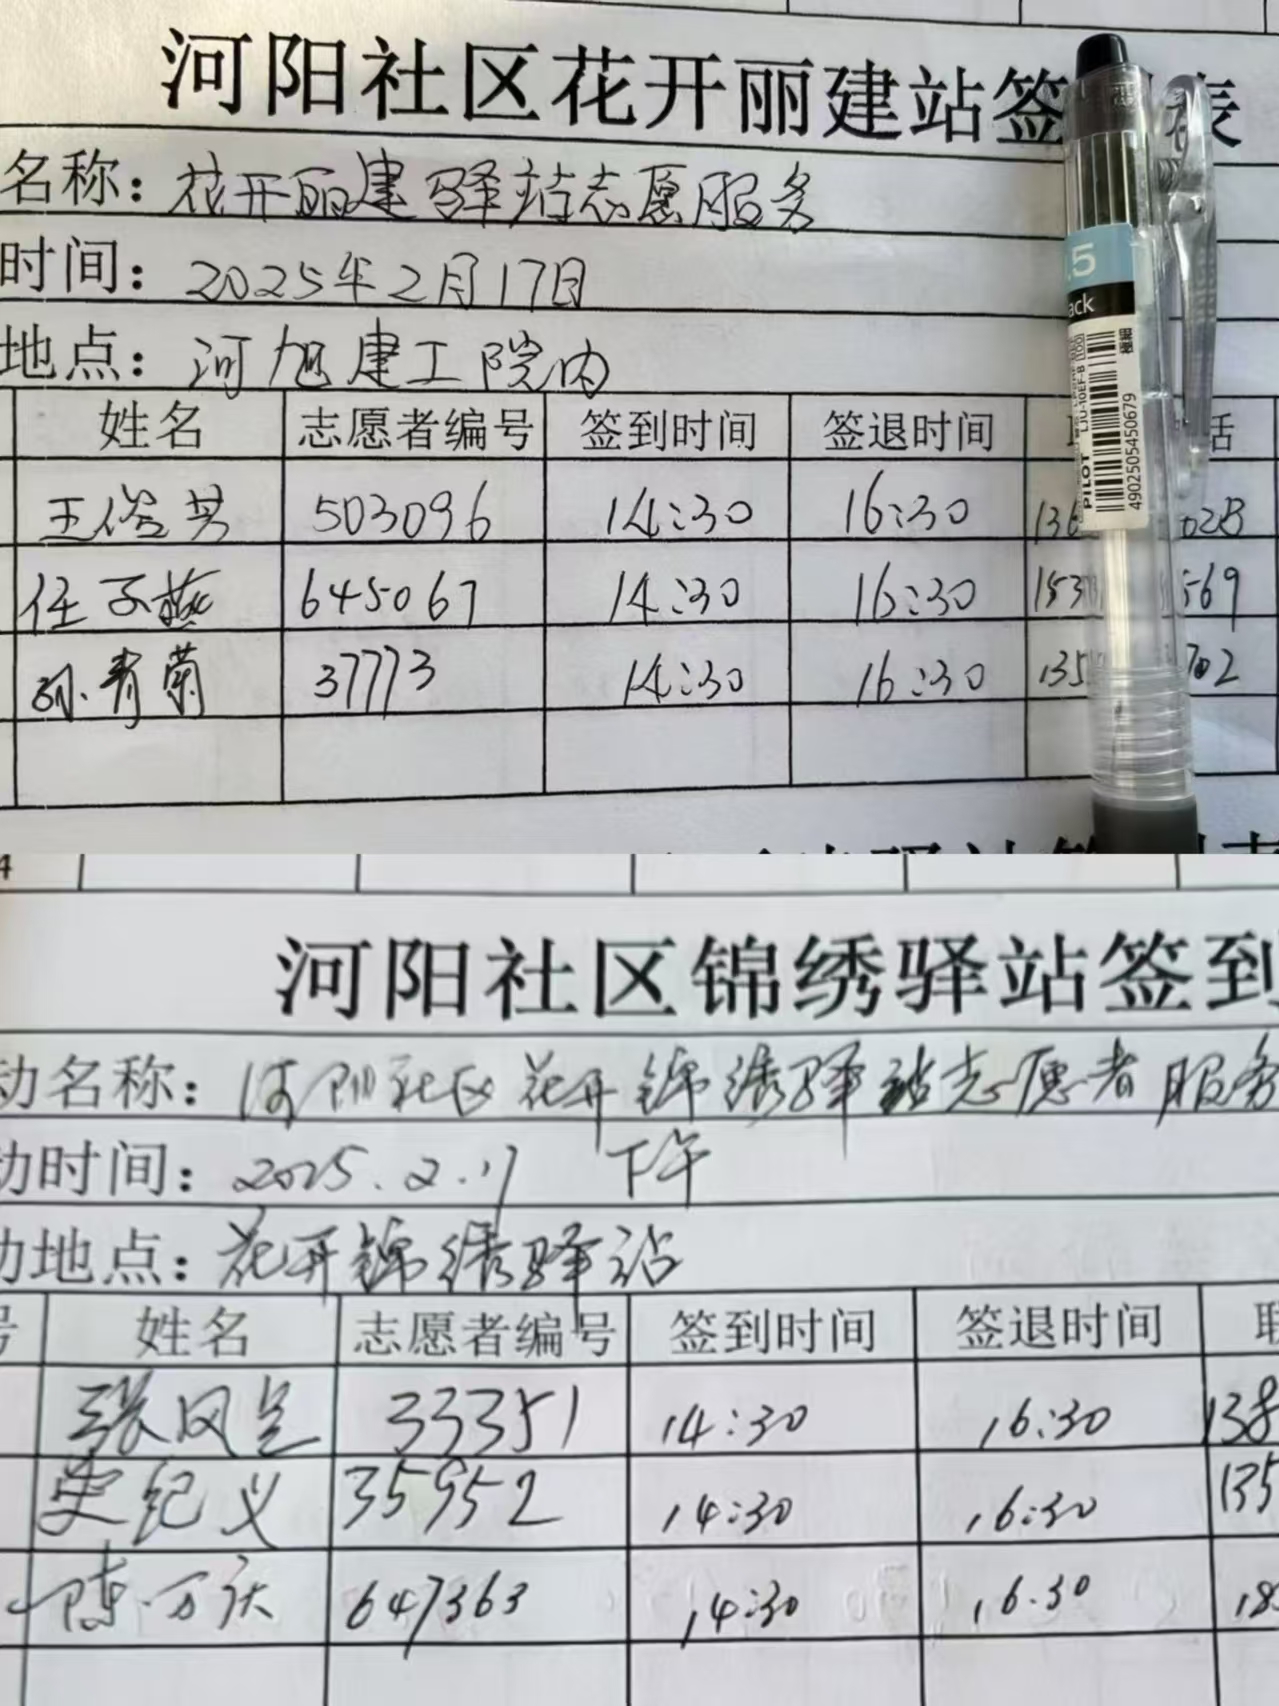 河阳社区花开丽建站签 表
名称：花开丽建驿站志愿服务
时间：2025年2月17日
地点：河旭建工院内
姓名 志愿者编号 签到时间 签退时间 话
王俗芳 503096 14:30 16:30 136 028
任子燕 645067 14:30 16:30 153 569
孙青菊 37773 14:30 16:30 135 702
.5
ack
PILOT LJU-10EF-B
極細
4902505450679
4
河阳社区锦绣驿站签到
动名称：河阳社区花开锦绣驿站志愿者服务
动时间：2025.2.17 下午
动地点：花开锦绣驿站
号 姓名 志愿者编号 签到时间 签退时间 联
张风兰 33351 14:30 16:30 138
史纪义 35952 14:30 16:30 135
陈万庆 647363 14:30 16.30 18